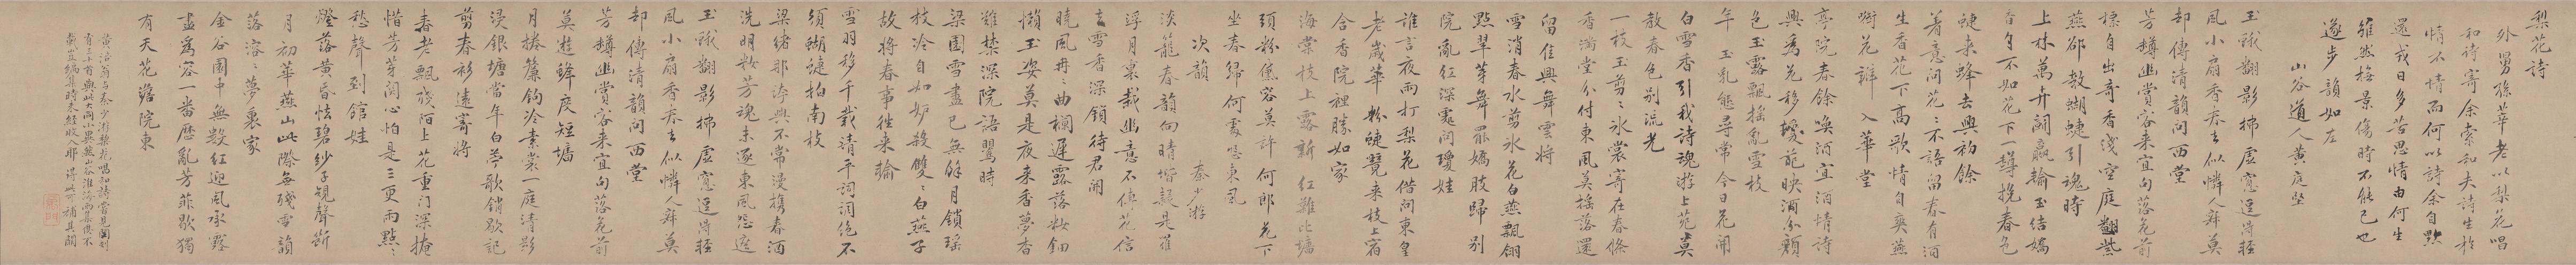 梨花詩
外舅孫莘老以梨花唱
和詩寄余索和夫詩生於
情不情而何以詩余自黜
還我日多苦思情由何生
雖然梅景傷時不能已也
遂步韻如左
山谷道人黃庭堅
玉戲翻影拂虛寬逗片輕
風小扇香奉去似憐人辭莫
却傳清韻問西堂
芳罇幽賞客來宜向落花前
標自出奇香淺空庭翻紫
燕卻教蝴蝶引魂時
上林萬卉闘贏輸玉結嬌
香自不如花下一罇挽春色
蜨來蜂去興初餘
着意問花花不語留春有酒
生香花下高歌情自奕燕
啣花辭入華堂
亭院春餘喚酒宜酒情詩
興為花移瓊葩映酒分顏
色玉露飄搖亂雪枝
午玉亂態尋常今日花開
白雪香引我詩魂游上苑莫
教春色別流光
一枝玉剪剪冰裳寄在春條
香滿堂分付東風莫搖落還
留佳興舞雲將
雪消春水剪冰花白燕飄翎
點翠芽舞罷嬌肢歸別
院亂紅深處問瓊娃
誰言夜雨打梨花借問東皇
老歲華粉蜨雙來枝上宿
合香院裡勝如家
海棠枝上露新紅難比墻
頭粉傅容莫許何郎花下
坐春歸何處怨東風
次韻
秦少游
淡籠春韻向晴堦疑是羅
浮月裏栽幽意不傳花信
去雪香深鎖待君開
曉風冉冉曲欄遲露落妝鈿
懶玉姿莫是夜來香夢杳
難禁深院語鶯時
梁園雪盡已無餘月鎖瑤
枝冷自如妒殺雙雙白燕子
故將春事徃來輸
雪羽移千載清平詞調絕不
須蝴蜨拍南枝
梁緒那禁興不常漫携春酒
洗明妝芳魂未逐東風怨
玉戲翻影拂虛寬逗片輕
風小扇香奉去似憐人辭莫
却傳清韻問西堂
芳罇幽賞客來宜向落花前
莫遊蜂度短墻
月捲簾鉤冷素裳一庭清影
浸銀塘當年白苧歌銷歇記
剪春衫遠寄將
春老飄殘陌上花重門深掩
惜芳芽閑心怕是三更雨點點
愁聲到館娃
燈落黃昏怯碧紗子規聲斷
月初華燕山此際無殘雪韻
落溶溶夢裏家
金谷園中無數紅迎風承露
盡為容一番歷亂芳菲歇獨
有天花澹院東
黃涪翁與秦少游梨花唱和詩嘗見閣刻